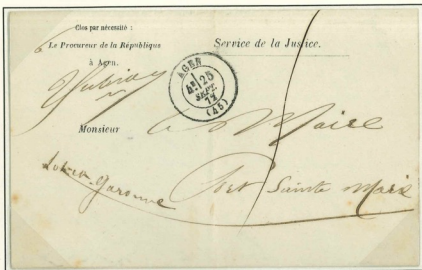 Clos par nécessité :
Le Procureur de la République
à Agen.
Service de la Justice.
AGEN
4E 25
SEPT.
72
(45)
Monsieur
le Maire
Port Sainte Marie
Lot-et-Garonne